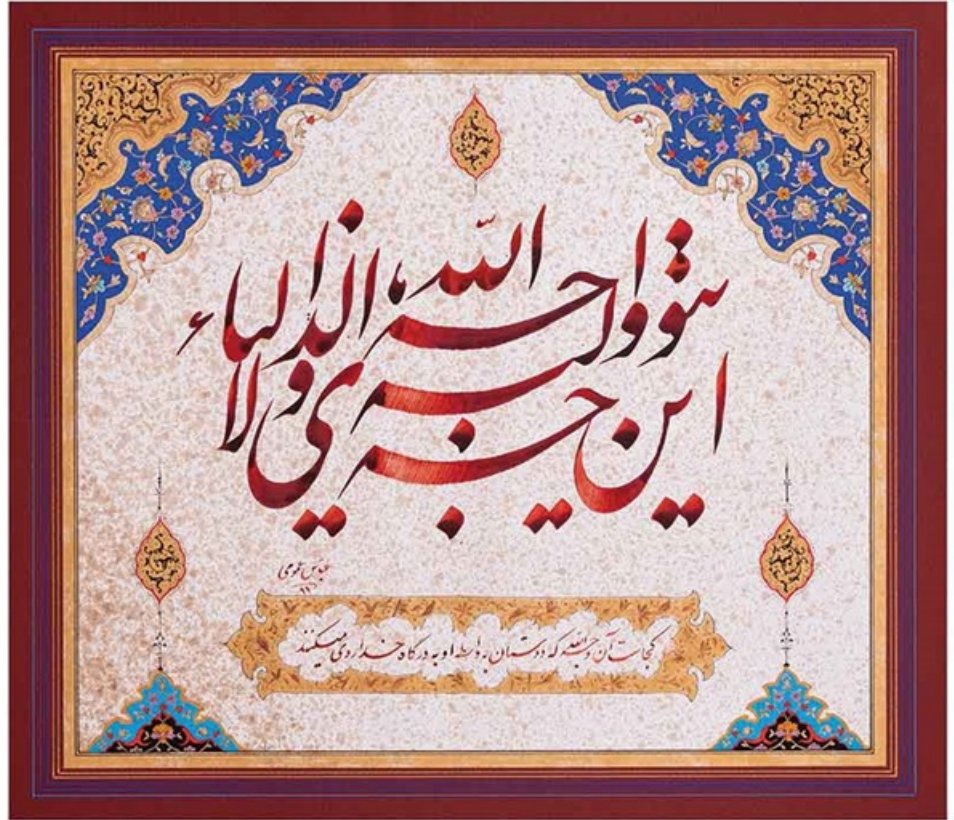 این وجه الله الذی الیه یتوجه الاولیاء
عباس
کجاست آن وجه الله که دوستان به واسطه او به درگاه خدا روی میکنند